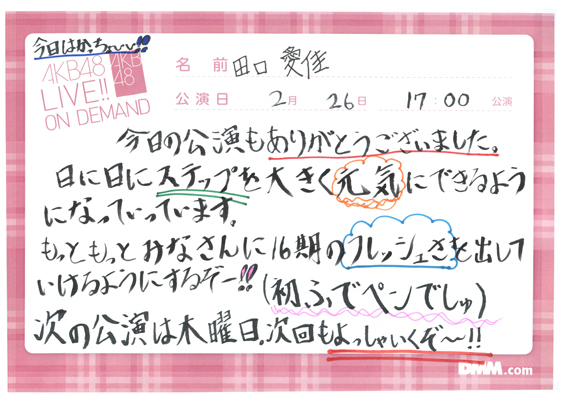 今日はかっちょいい!!
AKB48
LIVE!!
ON DEMAND
AKB
48
名前 田口 愛佳
公演日 2月 26日 17:00 公演
今日の公演もありがとうございました。
日に日にステップを大きく元気にできるよう
になっていっています。
もっともっとみなさんに16期のフレッシュさを出して
いけるようにするぞー!!
(初ふでペンでしゅ)
次の公演は木曜日。次回もよっしゃいくぞ〜!!
DMM.com